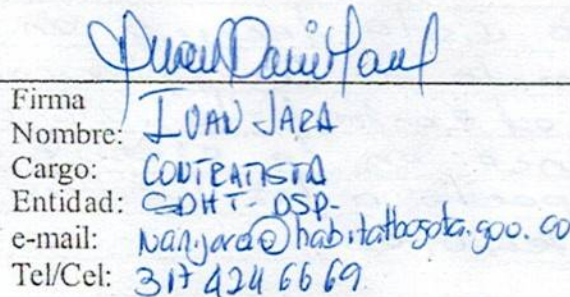 Firma
Nombre: IVAN JARA
Cargo: CONTRATISTA
Entidad: SDHT - DSP-
e-mail: @habitatbogota.gov.co
Tel/Cel: 317 424 66 69